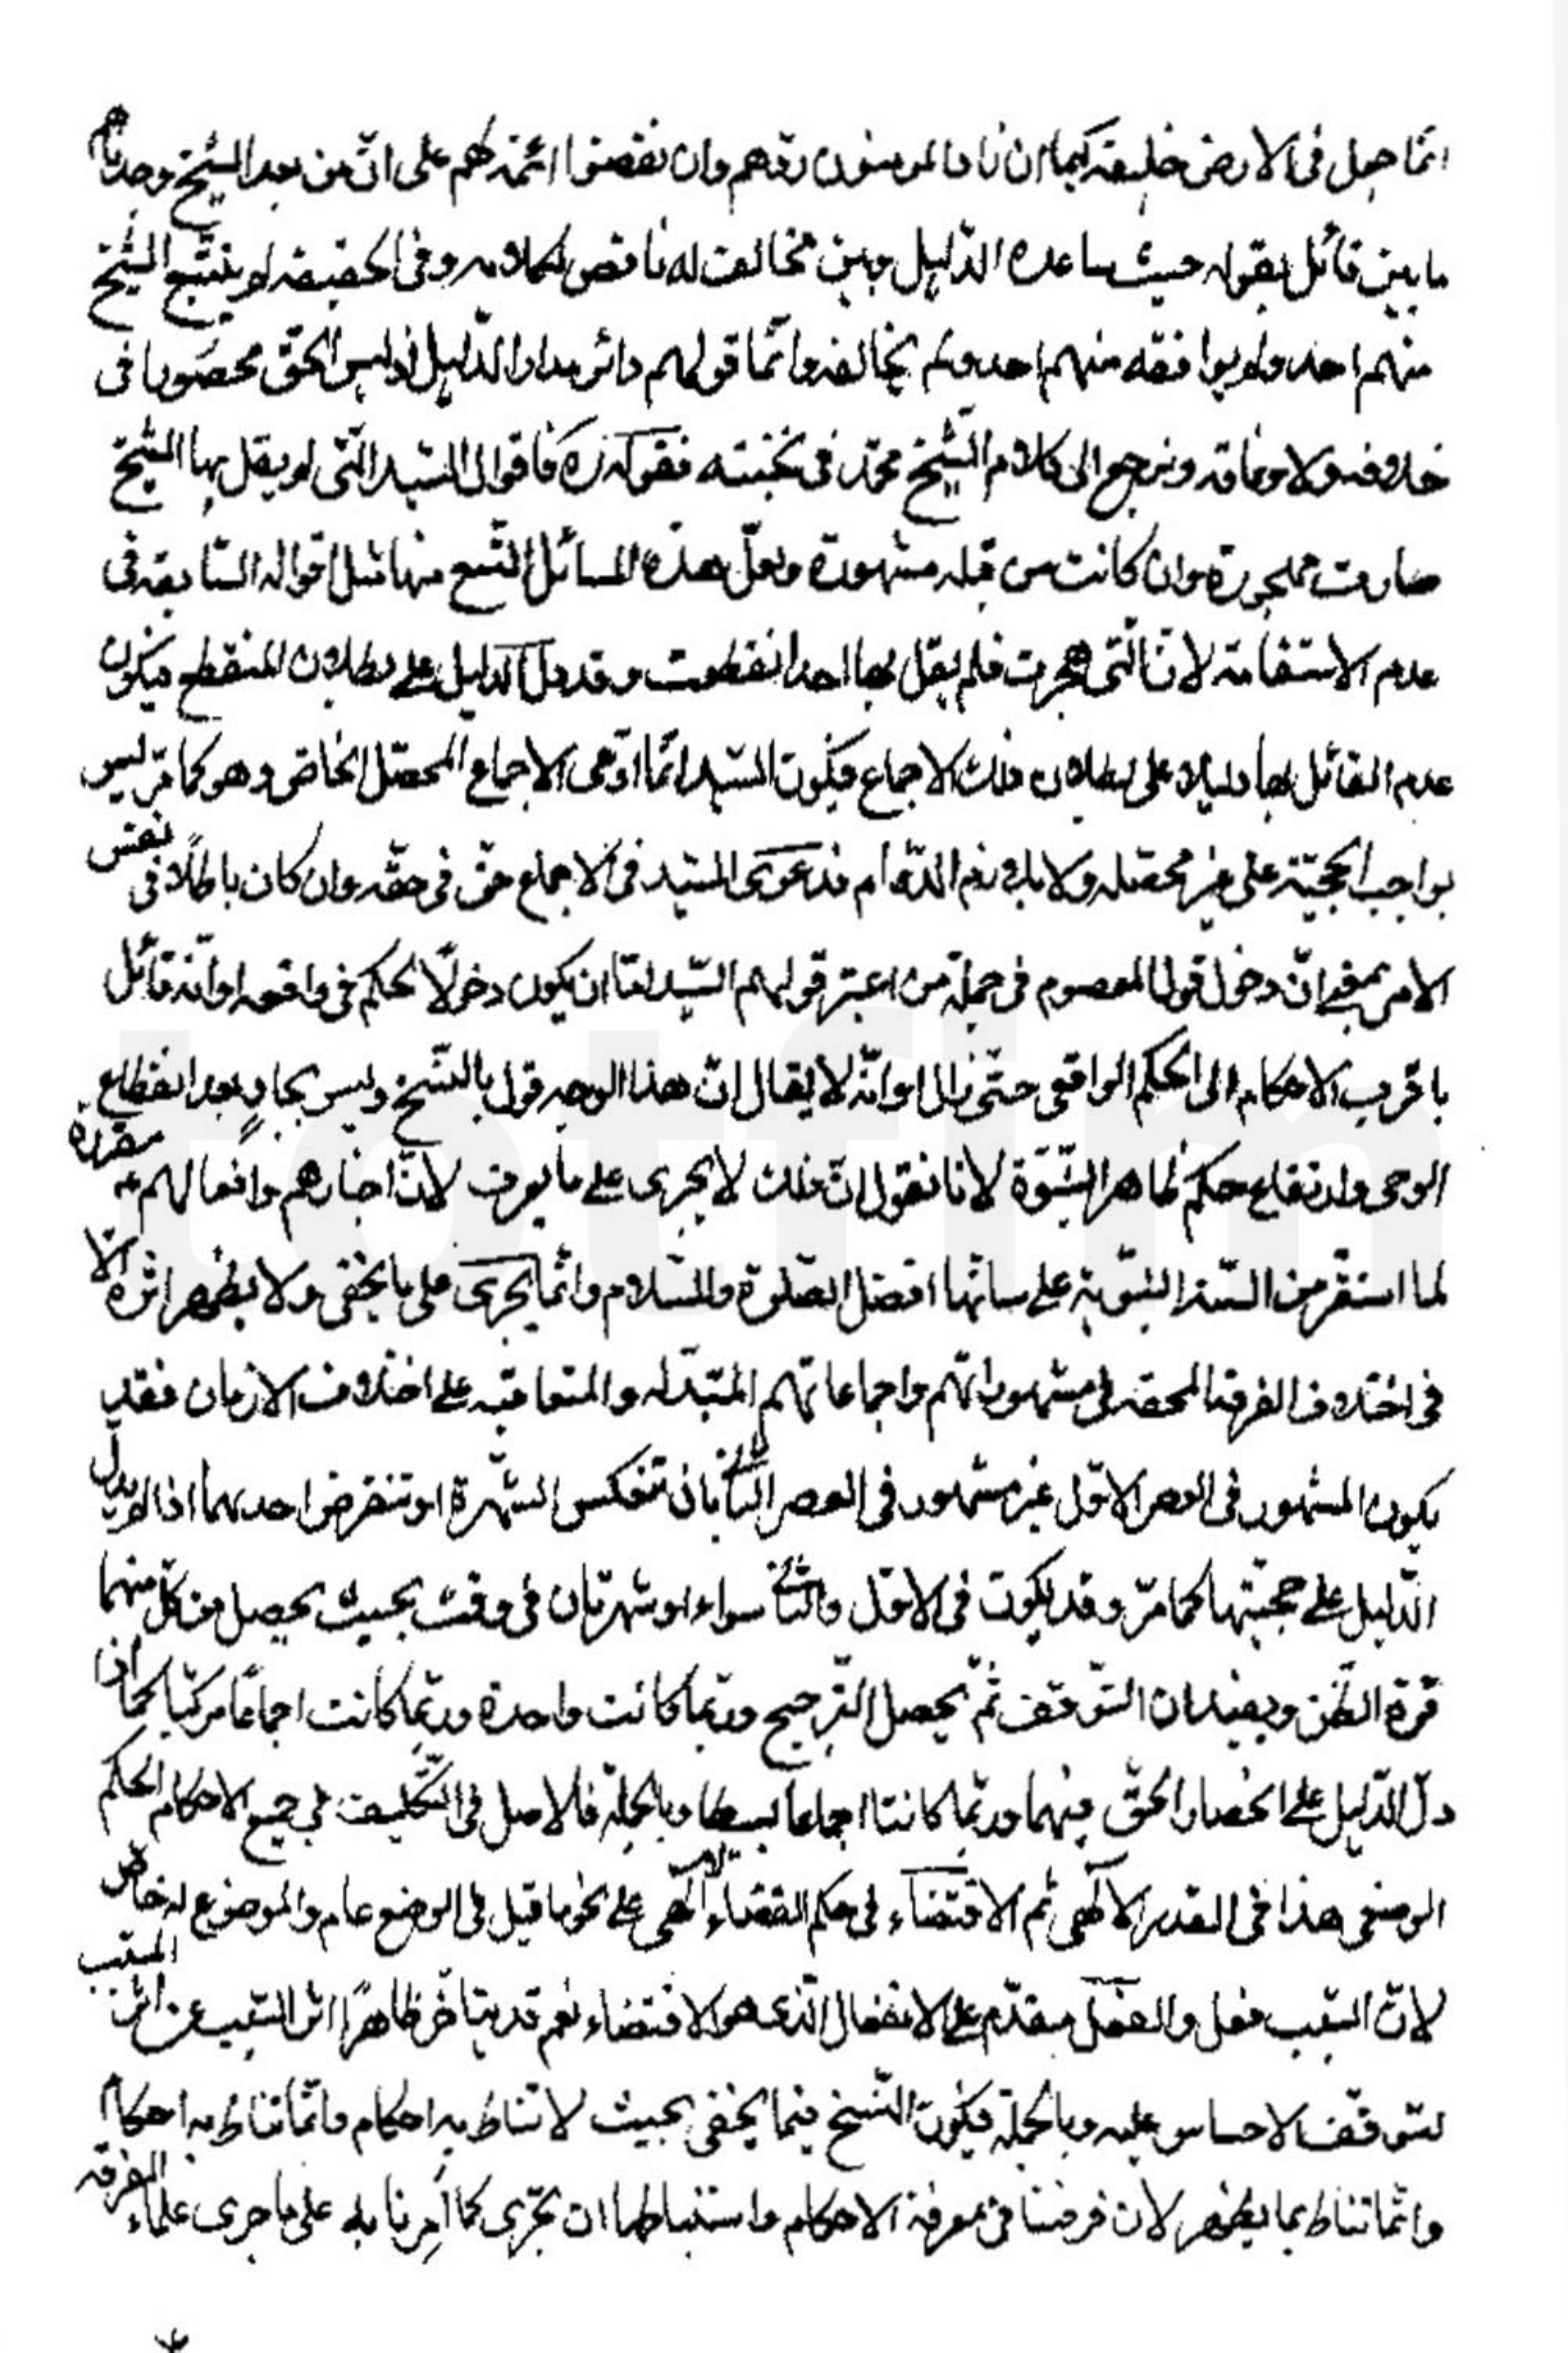 انّما جعل فى الارض خليفة كيما ان زاد المؤمنون ردّهم وان نقصوا اتمّه لهم على انّ من بعد الشيخ وجدناهم
ما بين قائل بقوله حيث ساعده الدّليل وبين مخالف له ناقض لكلامه وفى الحقيقة لم يتّبع الشيخ
منهم احد ولم يوافقه منهم احد ولم يخالفه وانّما قولهم دائر مدار الدّليل اذ ليس الحقّ محصورا فى
خلافه ولا وفاقه ونرجع الى كلام الشّيخ محمّد فى نخبته فقوله ره فاقوال السّيد الّتى لم يقل بها الشّيخ
صارت مهجورة وان كانت من قبله مشهورة ولعلّ هذه المسائل التّسع منها مثل اقواله السّابقة فى
عدم الاستقامة لانّ الّتى هجرت فلم يقل بها احد انقطعت وقد دلّ الدليل على بطلان المنقطع فيكون
عدم القائل بها دليلا على بطلان ذلك الاجماع فيكون السّيد انّما ادّعى الاجماع المحصّل الخاصّ وهو كما مرّ ليس
بواجب الحجيّة على غير محصّله ولا يلزم فدعوى السّيد فى الاجماع حقّ فى حقّه وان كان باطلًا فى نفس
الامر بمعنى انّ دخول قول المعصوم فى جملة من اعتبر قولهم السّيد امّا ان يكون دخولًا لحكم فى واقعه او انّه قائل
باقرب الاحكام الى الحكم الواقعى حتّى زال او انّه لا يقال انّ هذا الوجه قول بالنّسخ وليس بجارٍ بعد انقطاع
الوحى وارتفاع حكم ظاهر النّبّوة لانا نقول انّ ذلك لا يجرى على ما يعرف لانّ اخبارهم وافعالهم مقررة
لما استقرّ من السّنة النّبويّة على سانّها افضل الصّلوة والسّلام وانّما يجرى على ما يخفى ولا يظهر اثره الّا
فى اختلاف الفرقة المحقه فى مشهوراتهم واجماعاتهم المتبدّله والمتعاقبه على اختلاف الازمان فقد
يكون المشهور فى العصر الاوّل غير مشهور فى العصر الثّانى بان تنعكس الشّهرة او تنقرض احديهما اذا لم يدلّ
الدّليل على حجيّتها كما مرّ وقد يكون فى الاوّل والثّانى سواء او شهرتان فى وقت بحيث يحصل من كلّ منهما
قوّة الظّن ويفيدان التّوقّف ثمّ يحصل التّرجيح وربّما كانت واحدة وربّما كانت اجماعًا مركّبا كما اذا
دلّ الدّليل على انحصار الحقّ فيهما وربّما كانتا اجماعا بسيطا وبالجملة فالاصل فى التّكليف فى جميع الاحكام الحكم
الوضعى هذا فى القدر الالهى ثم الاقتضاء فى حكم القضاء الالهى على نحو ما قيل فى الوضع عام والموضوع له خاص
لانّ السّبب فعل والفعل مقدّم على الانفعال الّذى هو الاقتضاء نعم قد يتاخّر ظاهرًا اثر السّبب عن اثر المسبّب
لتوقّف الاحساس عليه وبالجملة فيكون النّسخ فيما يخفى بحيث لا تناط به احكام وانّما تناط به احكام
وانّما تناط بما يظهر لان فرضنا فى معرفة الاحكام واستنباطها ان نجرى كما اُمِرنا به على ما جرى علماء الفرقة